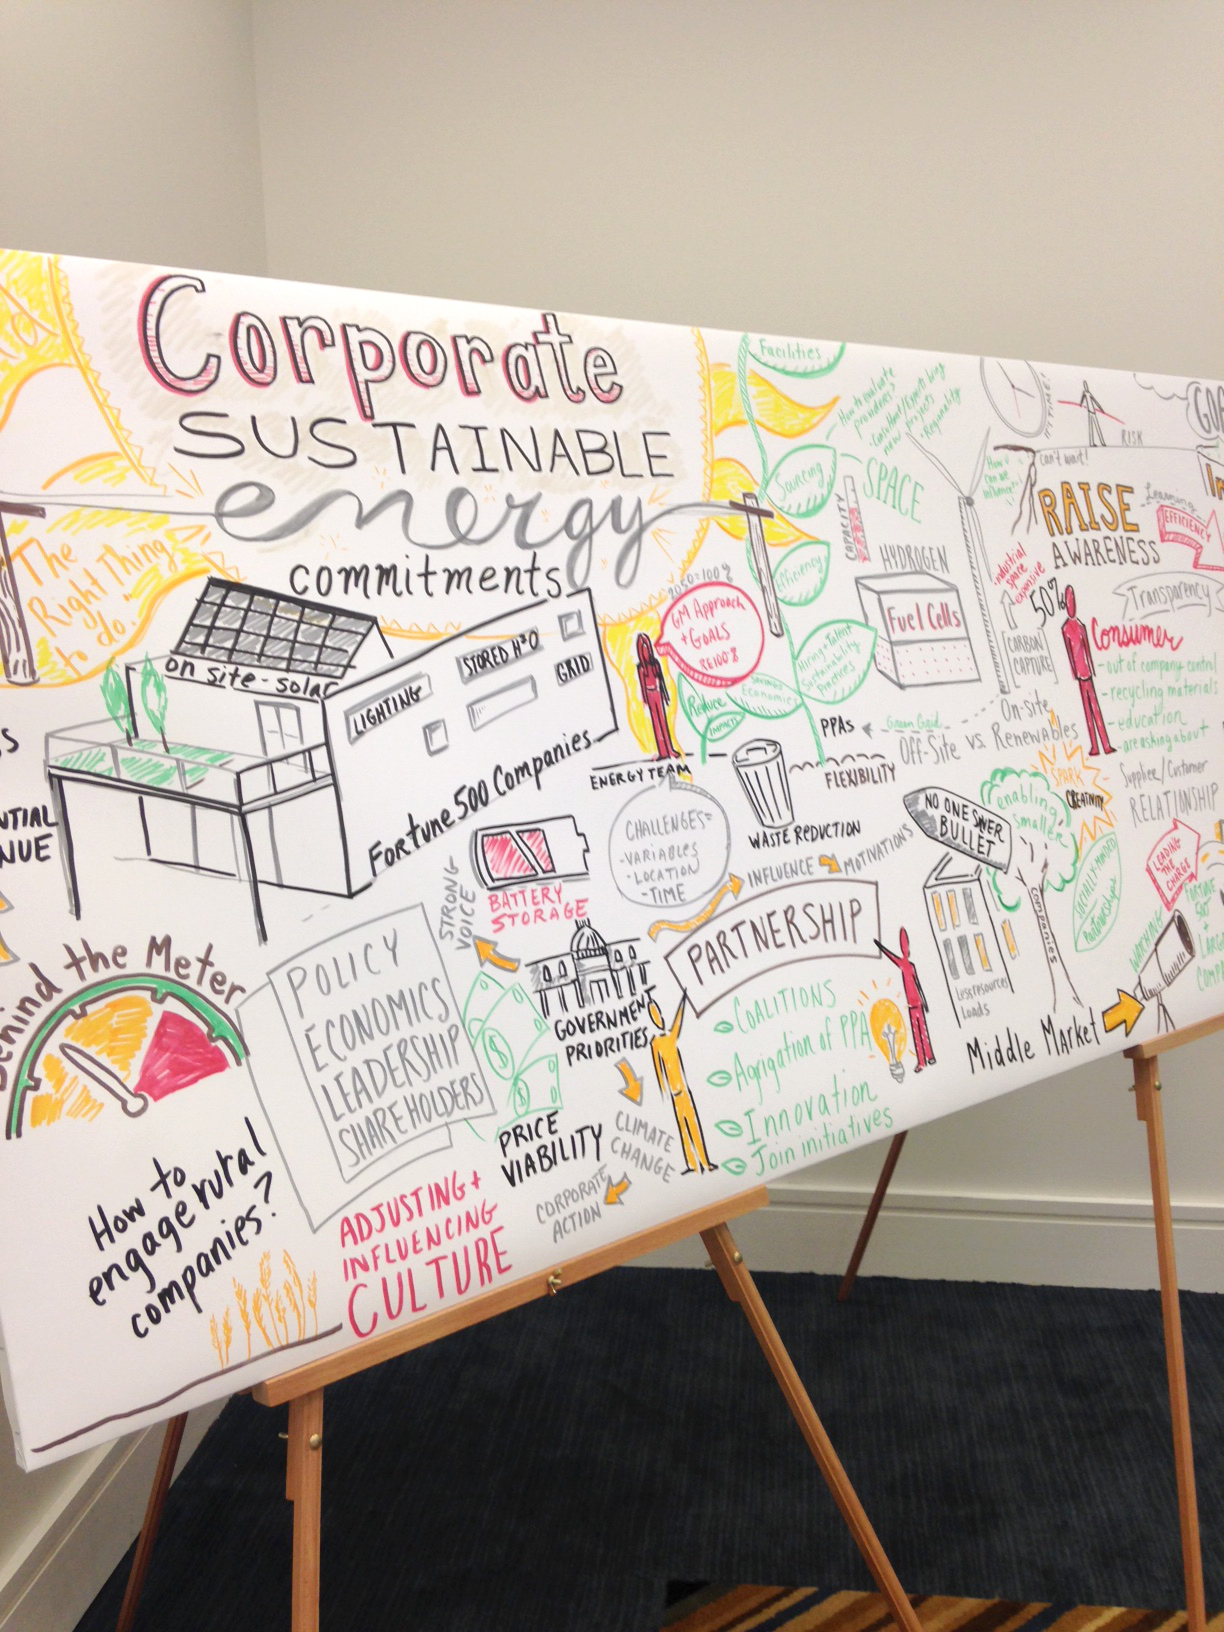 Corporate
SUSTAINABLE
energy
commitments
The
Right Thing
to do.
on site-solar
LIGHTING
STORED H²O
GRID
Fortune 500 Companies
NTIAL
NUE
Behind the Meter
How to
engage rural
companies?
POLICY
ECONOMICS
LEADERSHIP
SHAREHOLDERS
ADJUSTING +
INFLUENCING
CULTURE
STRONG
VOICE
BATTERY
STORAGE
GOVERNMENT
PRIORITIES
$
$
PRICE
VIABILITY
CLIMATE
CHANGE
CORPORATE
ACTION
2050=100%
GM Approach
+ GOALS
RE100%
ENERGY TEAM
CHALLENGES=
-VARIABLES
-LOCATION
-TIME
Facilities
Sourcing
Efficiency
Hiring + Talent
Sustainability
Practices
Reduce
IMPACTS
Economics
How to evaluate
providers?
new projects
Regionality
SPACE
CAPACITY
HYDROGEN
Fuel Cells
PPAs
Green Grid
Off-Site vs. Renewables
On-site
FLEXIBILITY
WASTE REDUCTION
INFLUENCE
MOTIVATIONS
PARTNERSHIP
COALITIONS
Agrigation of PPA
Innovation
Join initiatives
IT'S TIME!
RISK
can't wait!
How
can we
influence?
RAISE
AWARENESS
Learning
EFFICIENCY
industrial
space
expensive
50%
CARBON
CAPTURE
Transparency
Consumer
-out of company control
-recycling materials
-education
-are asking about
Supplier/Customer
RELATIONSHIP
SPARK
CREATIVITY
enabling
smaller
companies
NO ONE SILVER
BULLET
Less resources
Loads
Middle Market
SOCIALLY-MINDED
Partnerships
LEADING
THE
CHARGE
WATCHING
FORTUNE
500
+
LARGE
COMP